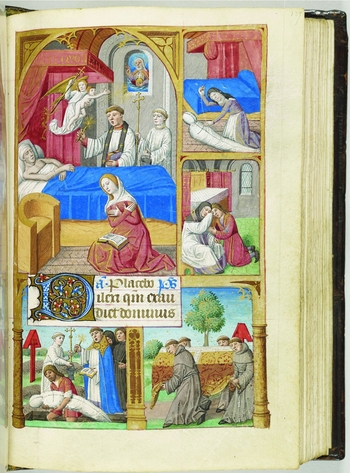 añ Placebo ps
Dilexi qm exau
diet dominus